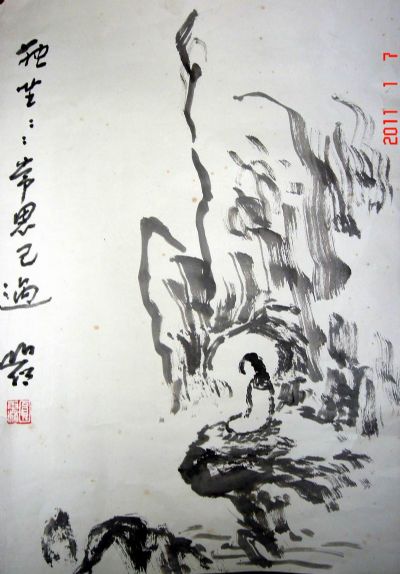 独坐：：常思己過
2011 1 7